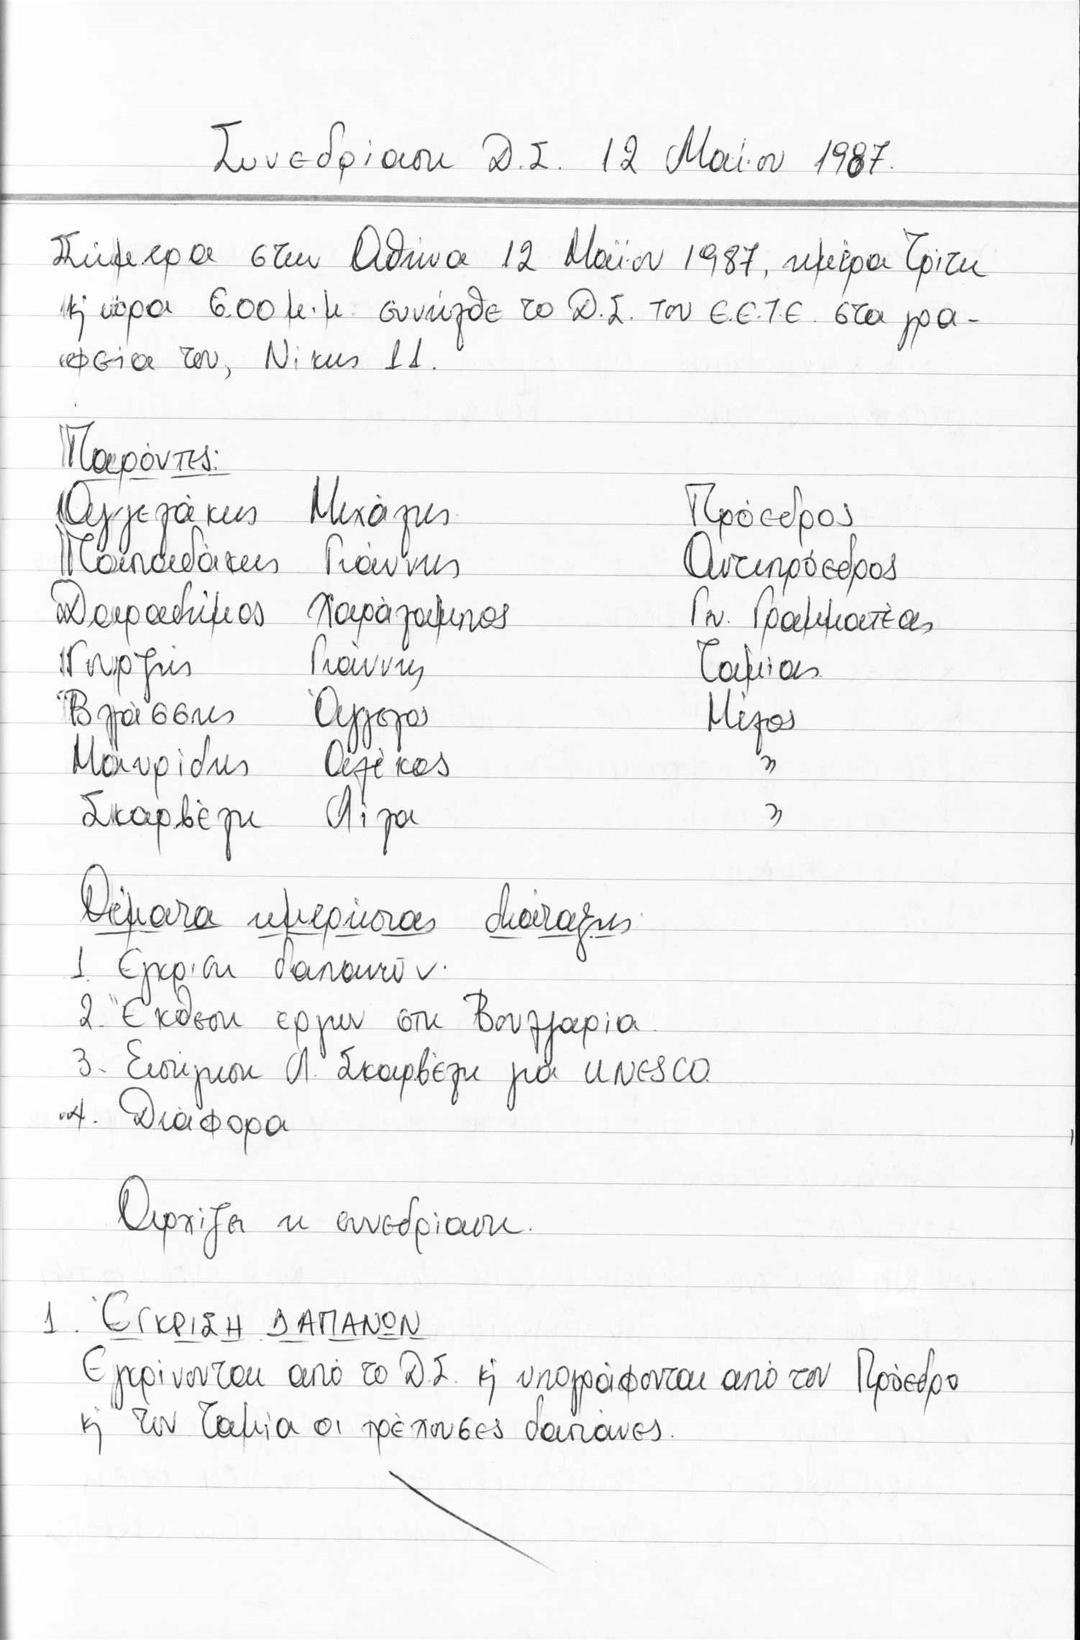 Συνεδρίαση Δ.Σ. 12 Μαΐου 1987.
Σήμερα στην Αθήνα 12 Μαΐου 1987, ημέρα Τρίτη
κ ώρα 6.00 μ.μ. συνήλθε το Δ.Σ. του Ε.Ε.Τ.Ε. στα γρα-
φεία του, Νίκης 11.
Παρόντες:
Αγγελάκης Μιχάλης Πρόεδρος
Παπαδάκης Γιάννης Αντιπρόεδρος
Δαραδήμος Χαράλαμπος Γν. Γραμματέας
Γουρζής Γιάννης Ταμίας
Βλάσσης Άγγελος Μέλος
Μαυρίδης Αλέκος "
Σκαρβέλη Λίλα "
Θέματα ημερήσιας διάταξης
1. Εγκριση δαπανών.
2. Έκθεση έργων στη Βουλγαρία.
3. Εισήγηση Λ. Σκαρβέλη για UNESCO.
4. Διάφορα
Αρχίζει η συνεδρίαση.
1. ΈΓΚΡΙΣΗ ΔΑΠΑΝΩΝ
Εγκρίνονται από το Δ.Σ. κ υπογράφονται από τον Πρόεδρο
κ τον Ταμία οι τρέχουσες δαπάνες.